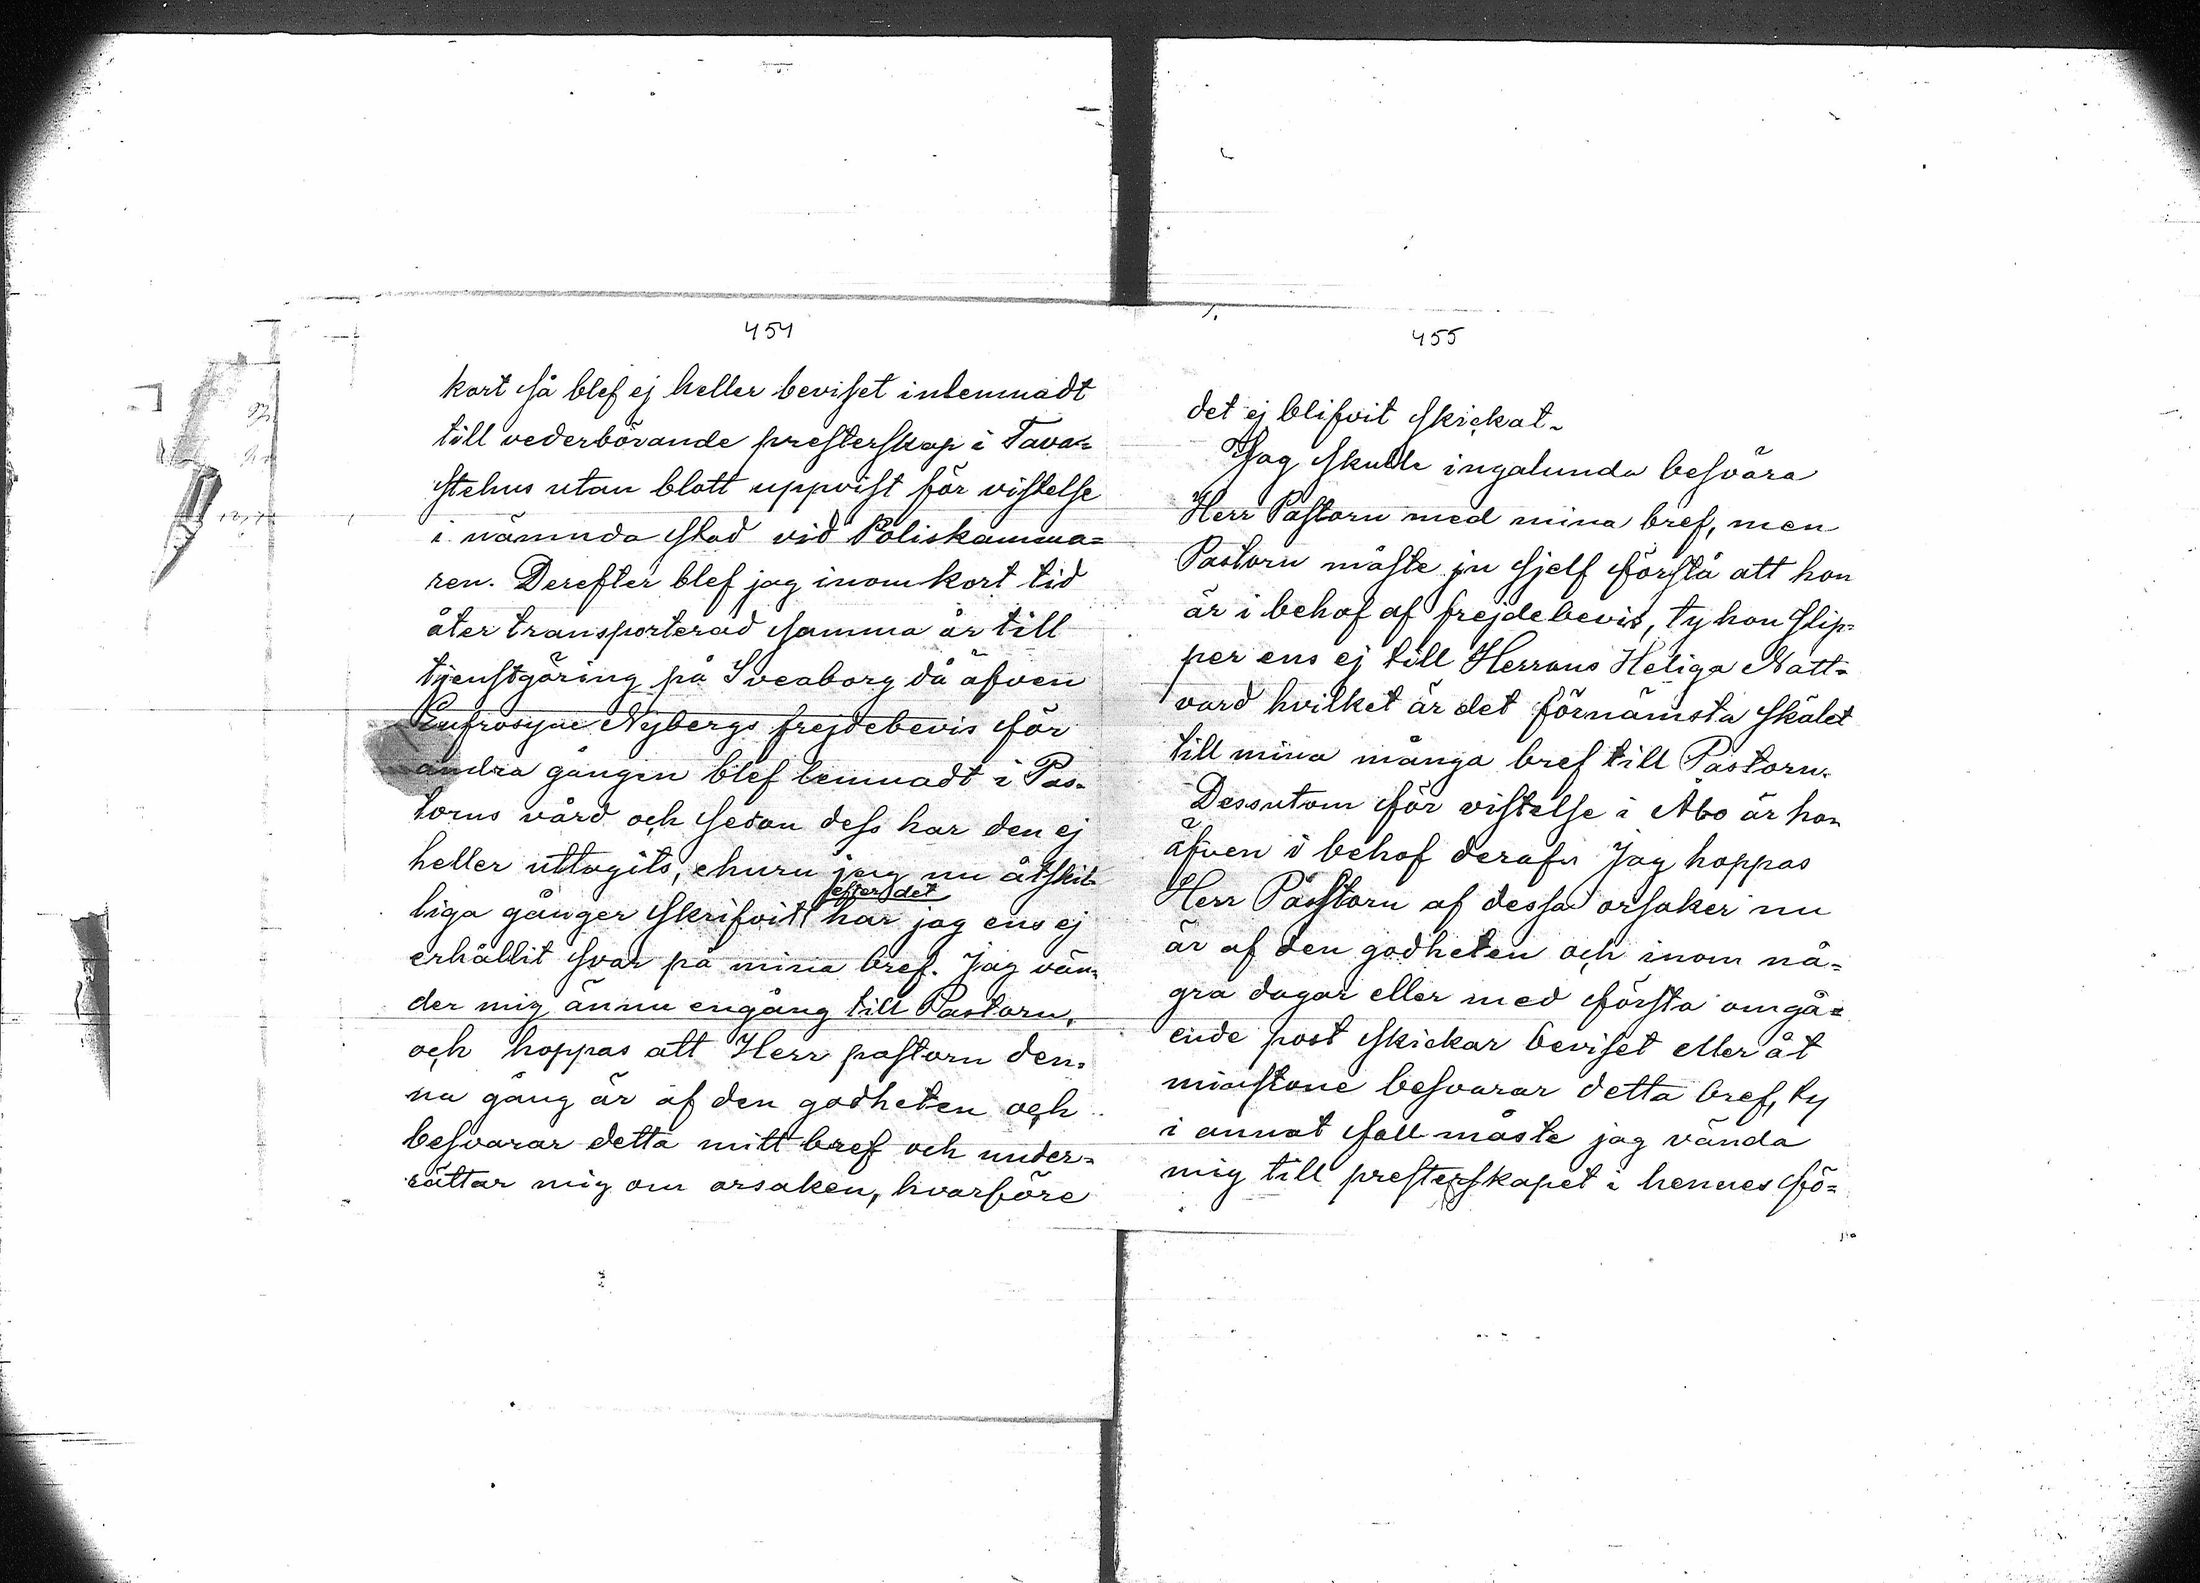 454
kort så blef ej heller beviset inlemnadt
till vederbörande presterskap i Tava=
stehus utan blott uppvist för vistelse
i nämnda stad vid Poliskamma=
ren. Derefter blef jag inom kort tid
åter transporterad samma år till
tjenstgöring på Sveaborg då äfven
Eufrosyne Nybergs frejdebevis för
andra gången blef lemnadt i Pas-
torns vård och sedan dess har den ej
heller uttagits, ehuru jag nu åtskil-
efter det
liga gånger skrifvit har jag ens ej
erhållit svar på mina bref. Jag vän-
der mig ännu engång till Pastorn,
och hoppas att Herr pastorn den-
na gång är af den godheten och
besvarar detta mitt bref och under=
rättar mig om orsaken, hvarföre
455
det ej blifvit skickat.
Jag skulle ingalunda besvära
Herr Pastorn med mina bref, men
Pastorn måste ju sjelf förstå att hon
är i behof af frejdebevis, ty hon slip=
per ens ej till Herrans Heliga Natt=
vard hvilket är det förnämsta skälet
till mina många bref till Pastorn.
Dessutom för vistelse i Åbo är hon
äfven i behof deraf. Jag hoppas
Herr Pastorn af dessa orsaker nu
är af den godheten och inom nå=
gra dagar eller med första omgå=
ende post skickar beviset eller åt
minstone besvarar detta bref, ty
i annat fall måste jag vända
mig till presterskapet i hennes fö=